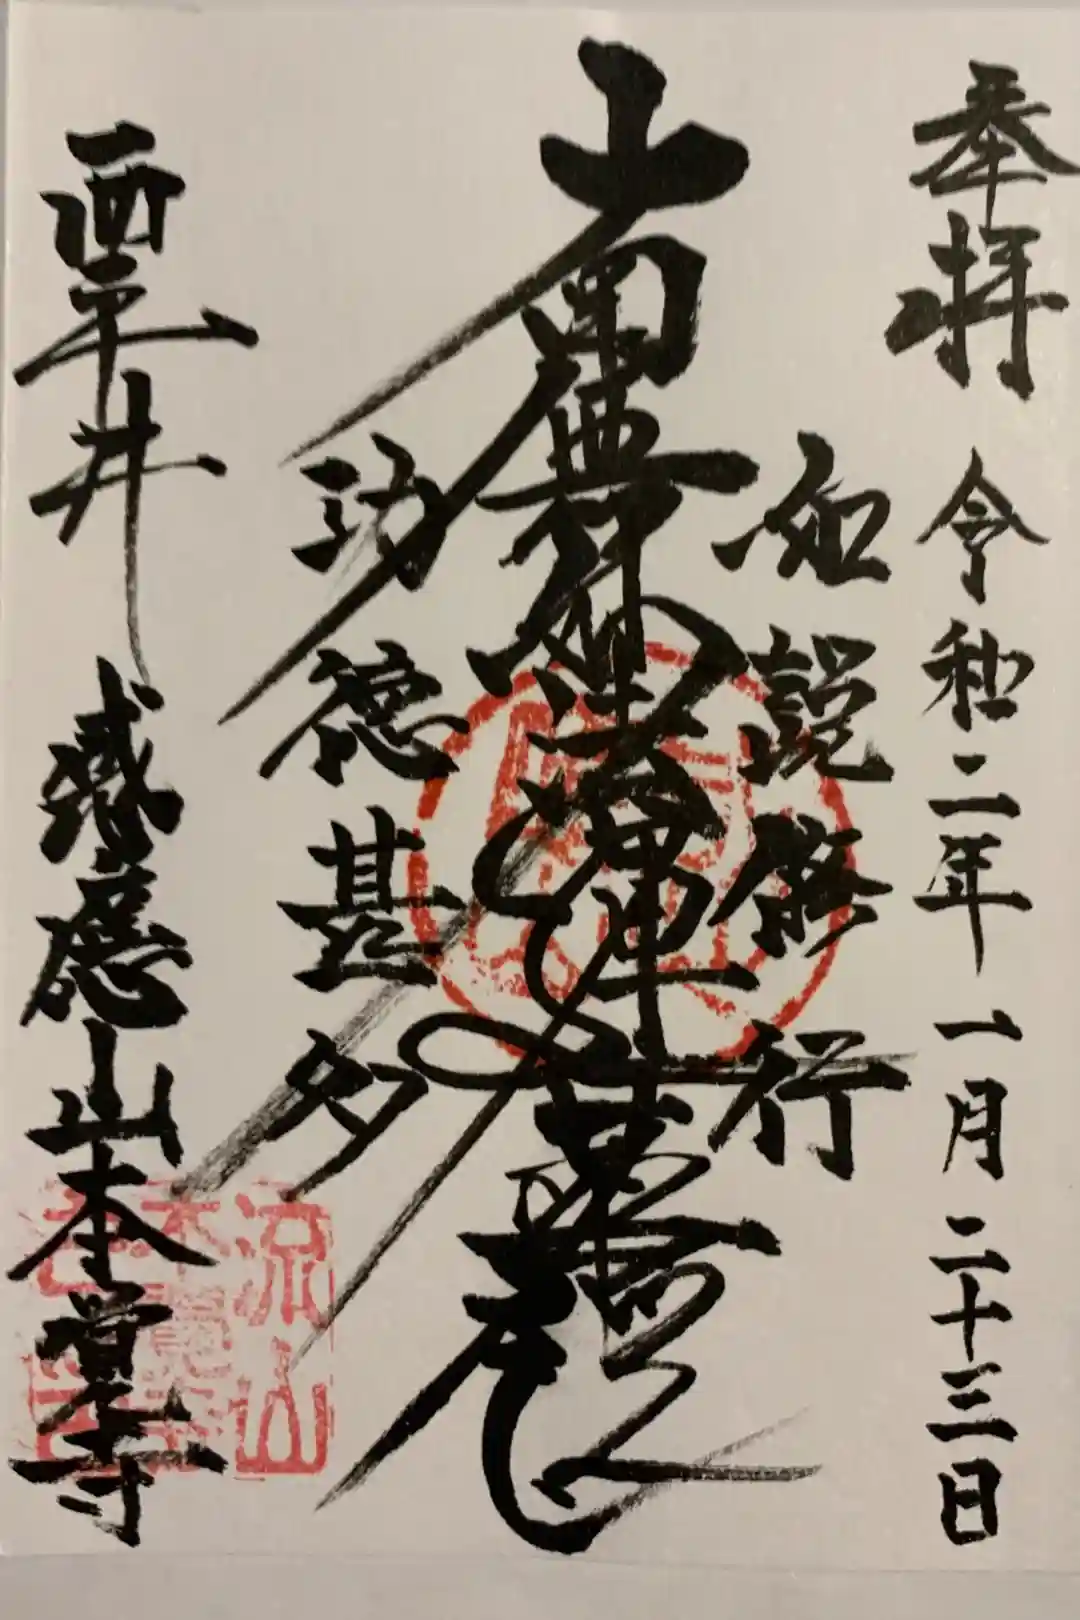 奉拝 令和二年一月二十三日
如説修行
南無妙法蓮華経
功徳甚多
粟井 感應山本覚寺
流山